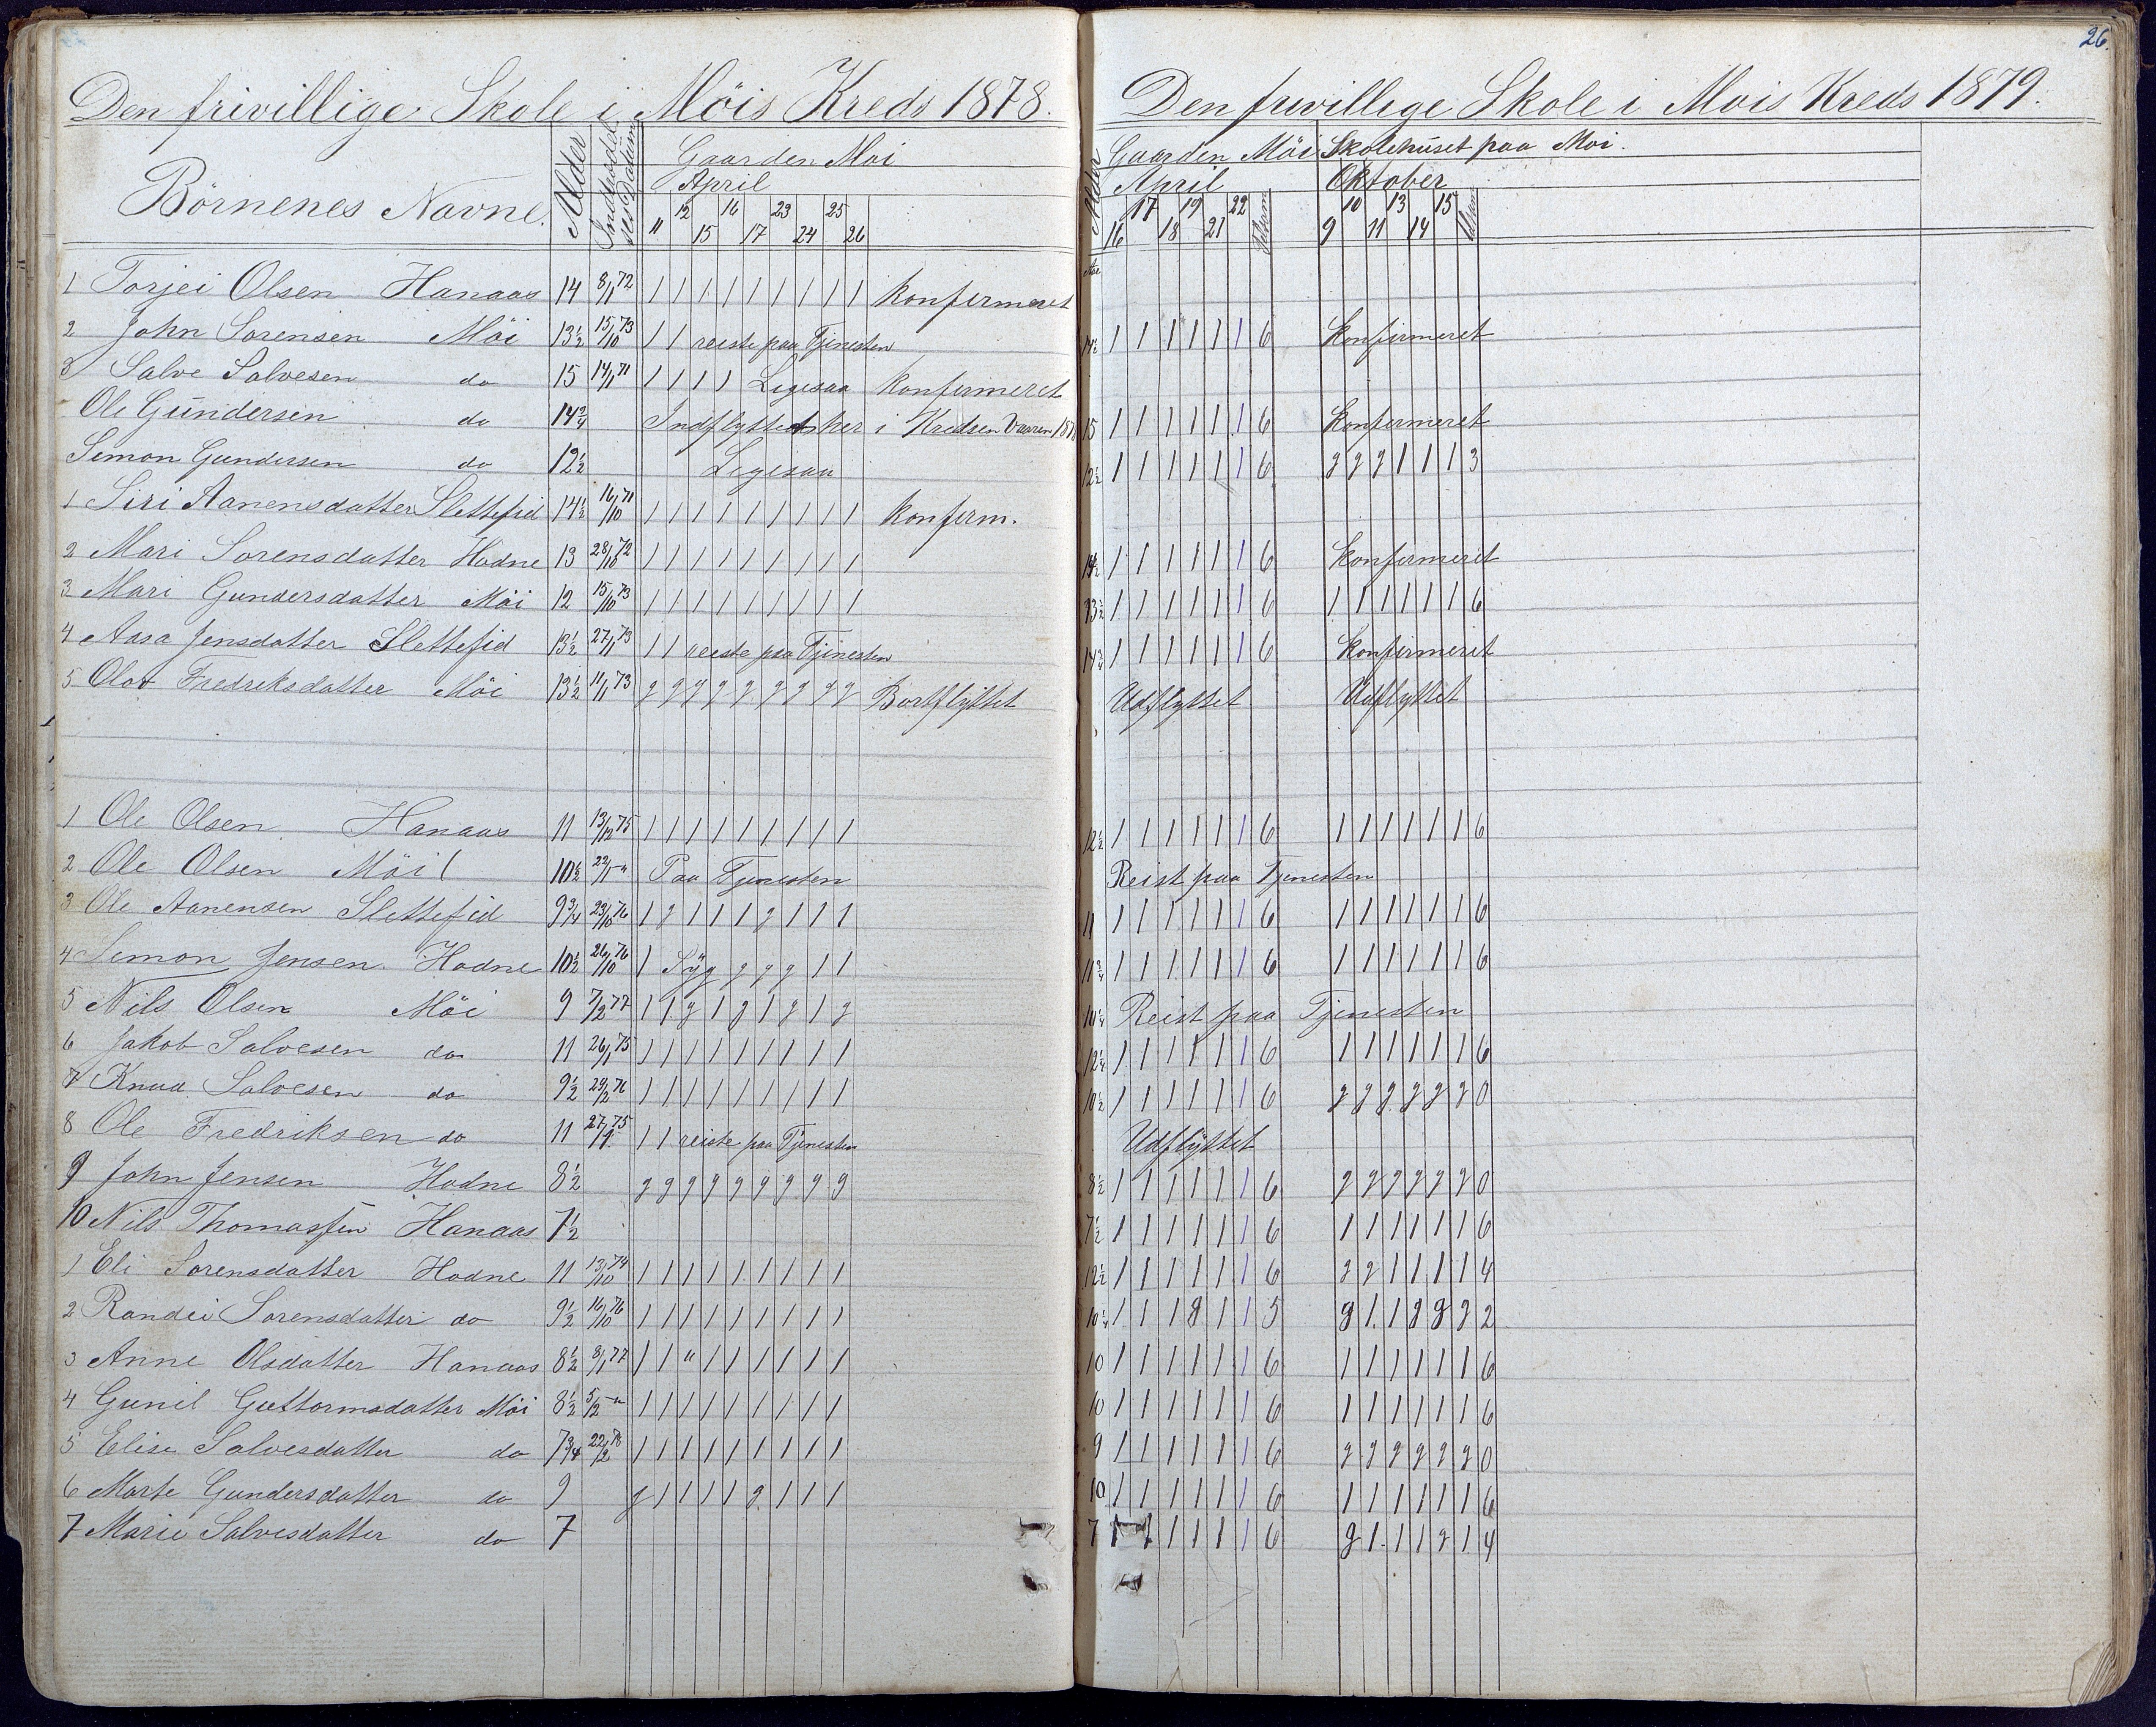 26.
Den frivillige Skole i Möis Kreds 1878.
Börnenes Navne. Alder Indtrædel. Gaarden Moi
April
11 12 15 16 17 23 24 25 26
1 Torjei Olsen Hanaas 14 8/1 72 1 1 1 1 1 1 1 1 1 konfirmeret
2 John Sorensen Möi 13½ 15/10 73 1 1 reiste paa Tjenesten
3 Salve Salvesen do 15 14/1 71 1 1 1 1 Ligesaa konfirmeret
Ole Gundersen do 14¾ Indflyttet her i Kredsen Vaaren 1878
Simon Gundersen do 12½ Ligesaa
1 Siri Aanensdatter Slettefid 14½ 16/10 71 1 1 1 1 1 1 1 1 1 konfirm.
2 Mari Sorensdatter Hodne 13 28/10 72 1 1 1 1 1 1 1 1 1
3 Mari Gundersdatter Möi 12 15/10 73 1 1 1 1 1 1 1 1 1
4 Aasa Jensdatter Slettefid 13½ 27/1 73 1 1 reiste paa Tjenesten
5 Olar Fredriksdatter Möi 13½ 11/1 73 g g g g g g g g g Bortflyttet
1 Ole Olsen Hanaas 11 13/12 75 1 1 1 1 1 1 1 1 1
2 Ole Olsen Möi 10½ 22/1 -"- Paa Tjenesten
3 Ole Aanensen Slettefid 9¾ 23/10 76 1 g 1 1 1 g 1 1 1
4 Simon Jensen Hodne 10½ 26/10 76 1 Syg g g g 1 1
5 Nils Olsen Möi 9 7/2 77 1 1 g 1 g 1 g 1 g
6 Jakob Salvesen do 11 26/1 75 1 1 1 1 1 1 1 1 1
7 Knud Salvesen do 9½ 29/2 76 1 1 1 1 1 1 1 1 1
8 Ole Fredriksen do 11 27/9 75 1 1 reiste paa Tjenesten
9 John Jensen Hodne 8½ g g g g g g g g g
10 Nils Thomassen Hanaas 7½
1 Eli Sorensdatter Hodne 11 13/10 74 1 1 1 1 1 1 1 1 1
2 Randei Sorensdatter do 9½ 16/10 76 1 1 1 1 1 1 1 1 1
3 Anne Olsdatter Hanaas 8½ 8/1 77 1 1 " 1 1 1 1 1 1
4 Gunil Guttormsdatter Möi 8½ 5/2 -"- 1 1 1 1 1 1 1 1 1
5 Elise Salvesdatter do 7¾ 22/2 78 1 1 1 1 1 1 1 1 1
6 Marte Gundersdatter do 9 g 1 1 1 1 g 1 1 1
7 Marie Salvesdatter do 7
Den frivillege Skole i Mois Kreds 1879.
Alder Gaarden Möi Skolehuset paa Moi.
April Oktober
16 17 18 19 21 22 9 10 11 13 14 15
14½ 1 1 1 1 1 1 6 Konfirmeret
15 1 1 1 1 1 1 6 Konfirmeret
12½ 1 1 1 1 1 1 6 g g g 1 1 1 3
14½ 1 1 1 1 1 1 6 Konfirmeret
13½ 1 1 1 1 1 1 6 1 1 1 1 1 1 6
14¾ 1 1 1 1 1 1 6 Konfirmeret
Udflyttet Udflyttet
12½ 1 1 1 1 1 1 6 1 1 1 1 1 1 6
Reist paa Tjenesten
11 1 1 1 1 1 1 6 1 1 1 1 1 1 6
11¾ 1 1 1 1 1 1 6 1 1 1 1 1 1 6
10¼ Reist paa Tjenesten
12¼ 1 1 1 1 1 1 6 1 1 1 1 1 1 6
10½ 1 1 1 1 1 1 6 g g g g g g 0
Udflyttet
8½ 1 1 1 1 1 1 6 g g g g g g 0
7½ 1 1 1 1 1 1 6 1 1 1 1 1 1 6
12½ 1 1 1 1 1 1 6 g g 1 1 1 1 4
10¼ 1 1 1 g 1 1 5 g 1 1 g g g 2
10 1 1 1 1 1 1 6 1 1 1 1 1 1 6
10 1 1 1 1 1 1 6 1 1 1 1 1 1 6
9 1 1 1 1 1 1 6 g g g g g g 0
10 1 1 1 1 1 1 6 1 1 1 1 1 1 6
7 1 1 1 1 1 1 6 g 1 1 1 g 1 4